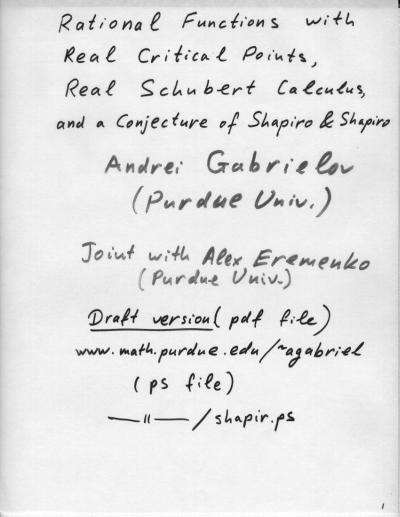 Rational Functions with
Real Critical Points,
Real Schubert Calculus,
and a Conjecture of Shapiro & Shapiro
Andrei Gabrielov
(Purdue Univ.)
Joint with Alex Eremenko
(Purdue Univ.)
Draft version (pdf file)
www.math.purdue.edu/~agabriel
(ps file)
—〃—/shapir.ps
1